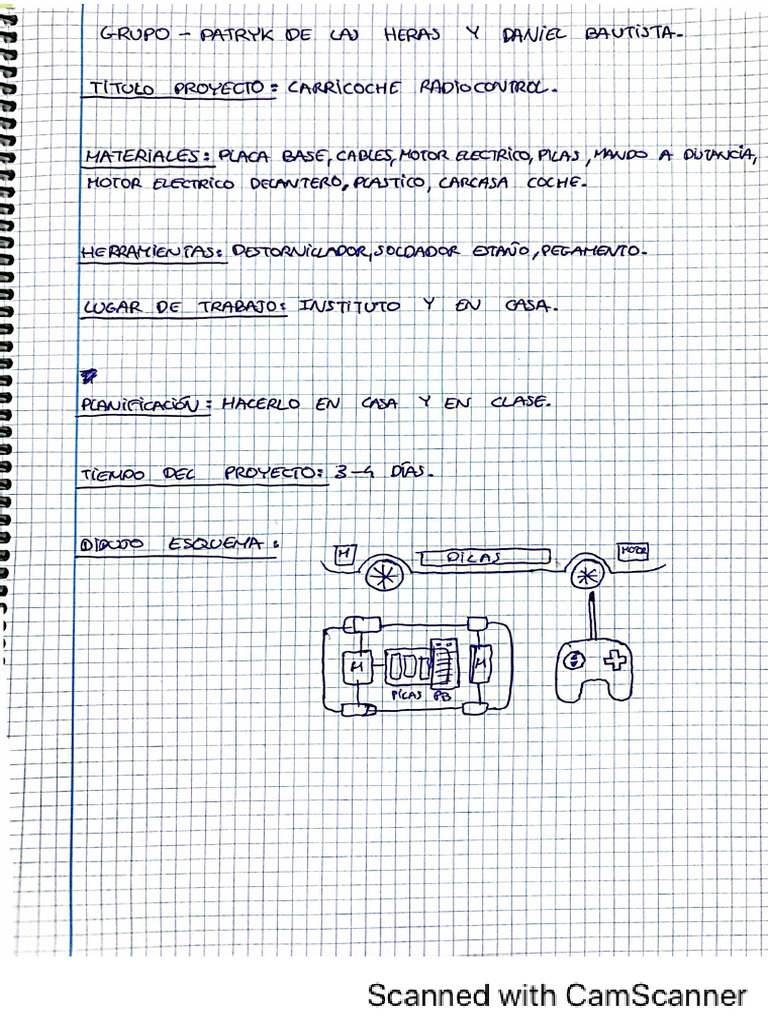 GRUPO - PATRYK DE LAS HERAS Y DANIEL BAUTISTA.
TÍTULO PROYECTO: CARRICOCHE RADIOCONTROL.
MATERIALES: PLACA BASE, CABLES, MOTOR ELECTRICO, PILAS, MANDO A DISTANCIA,
MOTOR ELECTRICO DELANTERO, PLASTICO, CARCASA COCHE.
HERRAMIENTAS: DESTORNILLADOR, SOLDADOR ESTAÑO, PEGAMENTO.
LUGAR DE TRABAJO: INSTITUTO Y EN CASA.
PLANIFICACIÓN: HACERLO EN CASA Y EN CLASE.
TIEMPO DEL PROYECTO: 3-4 DÍAS.
DIBUJO ESQUEMA:
M PILAS MOTOR
M M
PILAS PB
Scanned with CamScanner